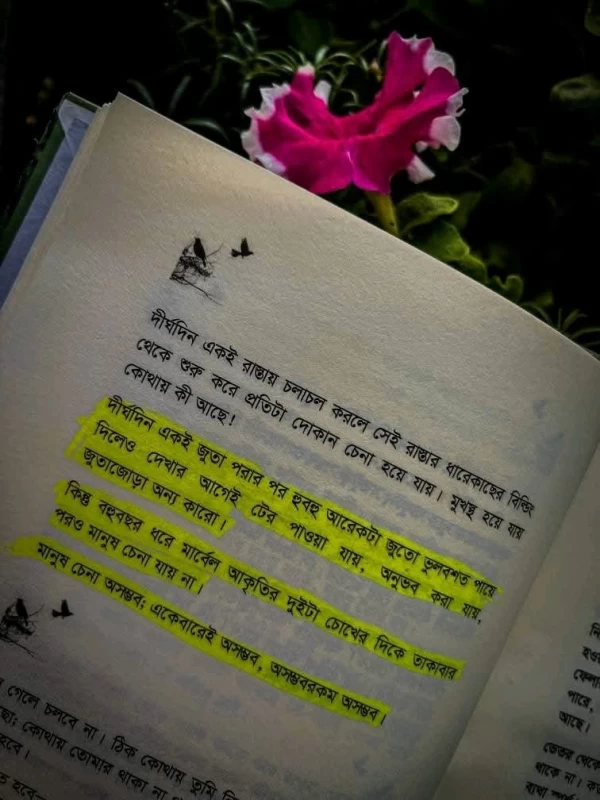 দীর্ঘদিন একই রাস্তায় চলাচল করলে সেই রাস্তার ধারেকাছের বিল্ডিং
থেকে শুরু করে প্রতিটা দোকান চেনা হয়ে যায়। মুখস্থ হয়ে যায়
কোথায় কী আছে!
দীর্ঘদিন একই জুতা পরার পর হুবহু আরেকটা জুতো ভুলবশত পায়ে
দিলেও দেখার আগেই টের পাওয়া যায়, অনুভব করা যায়,
জুতাজোড়া অন্য কারো।
কিন্তু বহুবছর ধরে মার্বেল আকৃতির দুইটা চোখের দিকে তাকাবার
পরও মানুষ চেনা যায় না।
মানুষ চেনা অসম্ভব; একেবারেই অসম্ভব, অসম্ভবরকম অসম্ভব।
গেলে চলবে না। ঠিক কোথায় তুমি
কোথায় তোমার থাকা না
হবে।
পারে,
আছে।
ভেতর থেকে
থাকে না।
ব্যথা